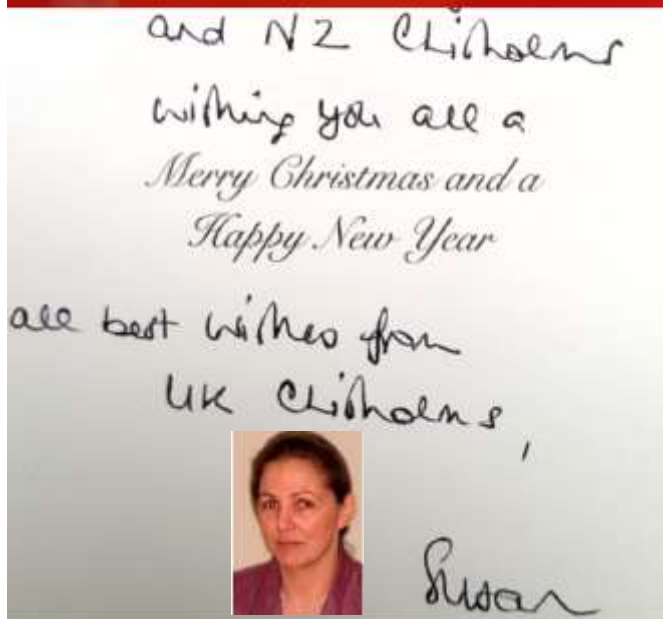 and NZ Chisholms
wishing you all a
Merry Christmas and a
Happy New Year
all best wishes from
UK Chisholms,
Susan